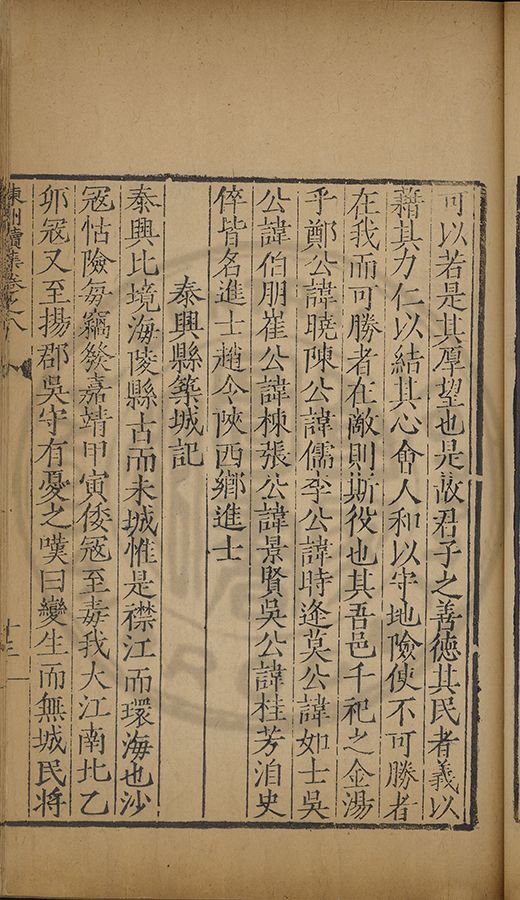 可以若是其厚望也是故君子之善德其民者義以
藉其力仁以結其心會人和以守地險使不可勝者
在我而可勝者在敵則斯役也其吾邑千祀之金湯
乎鄭公諱曉陳公諱儒李公諱時逵莫公諱如士吳
公諱伯朋崔公諱棟張公諱景賢吳公諱桂芳洎史
倅皆名進士趙令陝西鄉進士
泰興縣築城記
泰興比境海陵縣古而未城惟是襟江而環海也沙
寇怙險每竊發嘉靖甲寅倭寇至毒我大江南北乙
夘寇又至揚郡吳守有憂之嘆曰變生而無城民將
續集卷之八
十二